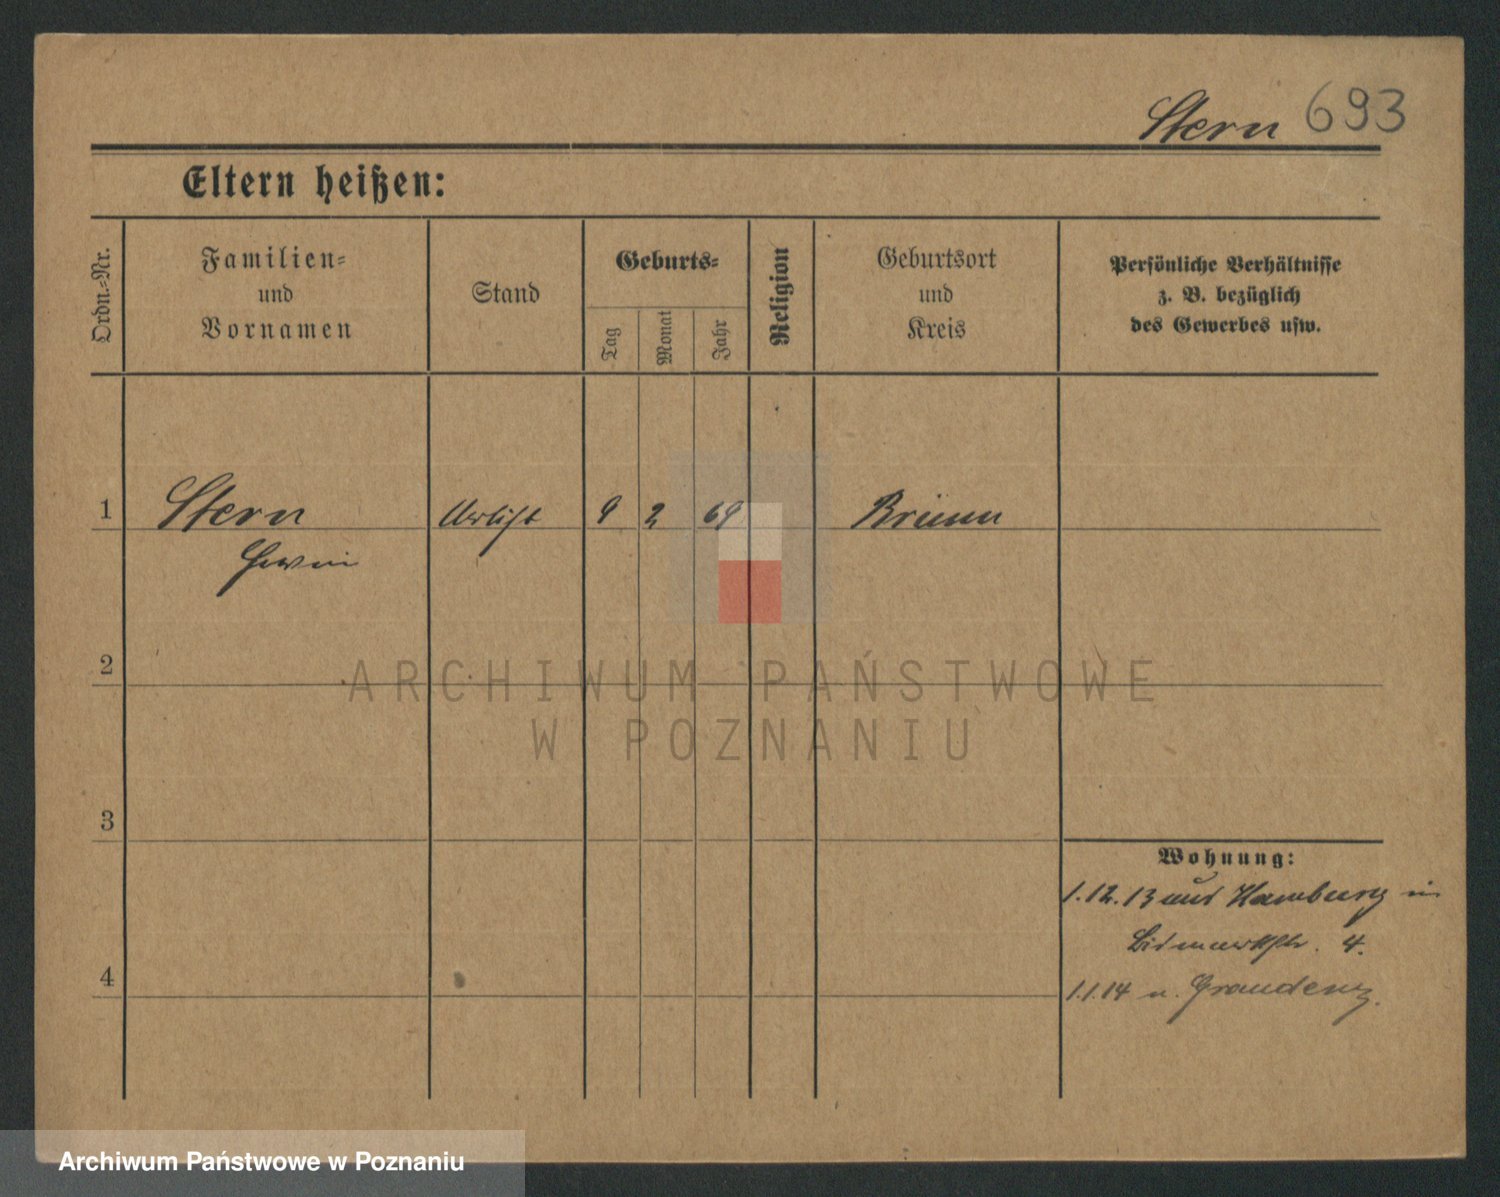 Stern 693
Eltern heißen:
Ordn.-Nr.
Familien-
und
Vornamen
Stand
Geburts-
Tag
Monat
Jahr
Religion
Geburtsort
und
Kreis
Persönliche Verhältnisse
z. B. bezüglich
des Gewerbes usw.
1 Stern Artist 9 2 69 Brünn
2
3
4
Wohnung:
1.12.13 aus Hamburg in
Bismarkstr. 4.
1.1.14 n. Graudenz.
ARCHIWUM PAŃSTWOWE
W POZNANIU
Archiwum Państwowe w Poznaniu